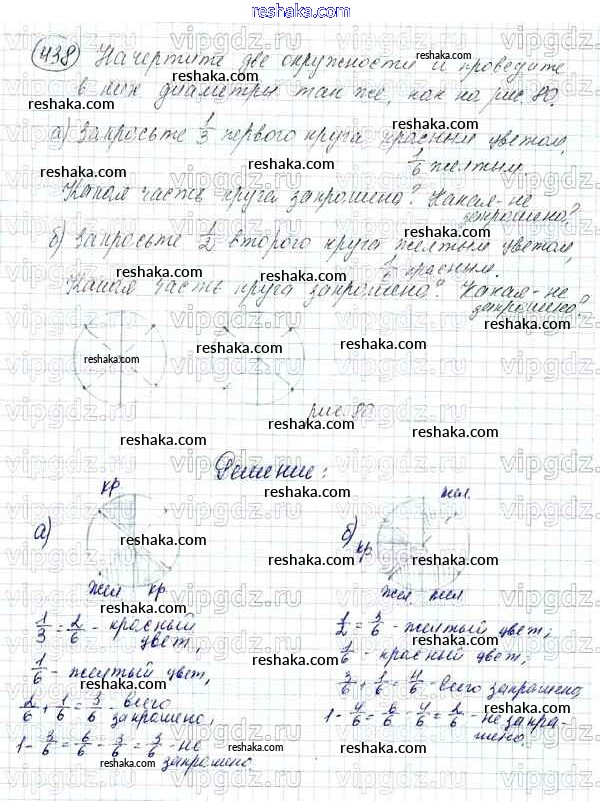 reshaka.com
438 Начертите две окружности и проведите
в них диаметры так же, как на рис. 80.
а) Закрасьте 1/3 первого круга красным цветом,
1/6 желтым.
Какая часть круга закрашено? Какая - не
закрашено?
б) Закрасьте 1/2 второго круга желтым цветом,
1/6 красным.
Какая часть круга закрашено? Какая - не
закрашено?
рис. 80
Решение:
а) кр
жел кр
б) жел.
кр.
жел жел
1/3 = 2/6 - красный
цвет,
1/6 - желтый цвет,
2/6 + 1/6 = 3/6 - всего
закрашено,
1 - 3/6 = 6/6 - 3/6 = 3/6 - не
закрашено.
1/2 = 3/6 - желтый цвет;
1/6 - красный цвет;
3/6 + 1/6 = 4/6 - всего закрашено
1 - 4/6 = 6/6 - 4/6 = 2/6 - не закра-
шено.
vipgdz.ru
reshaka.com